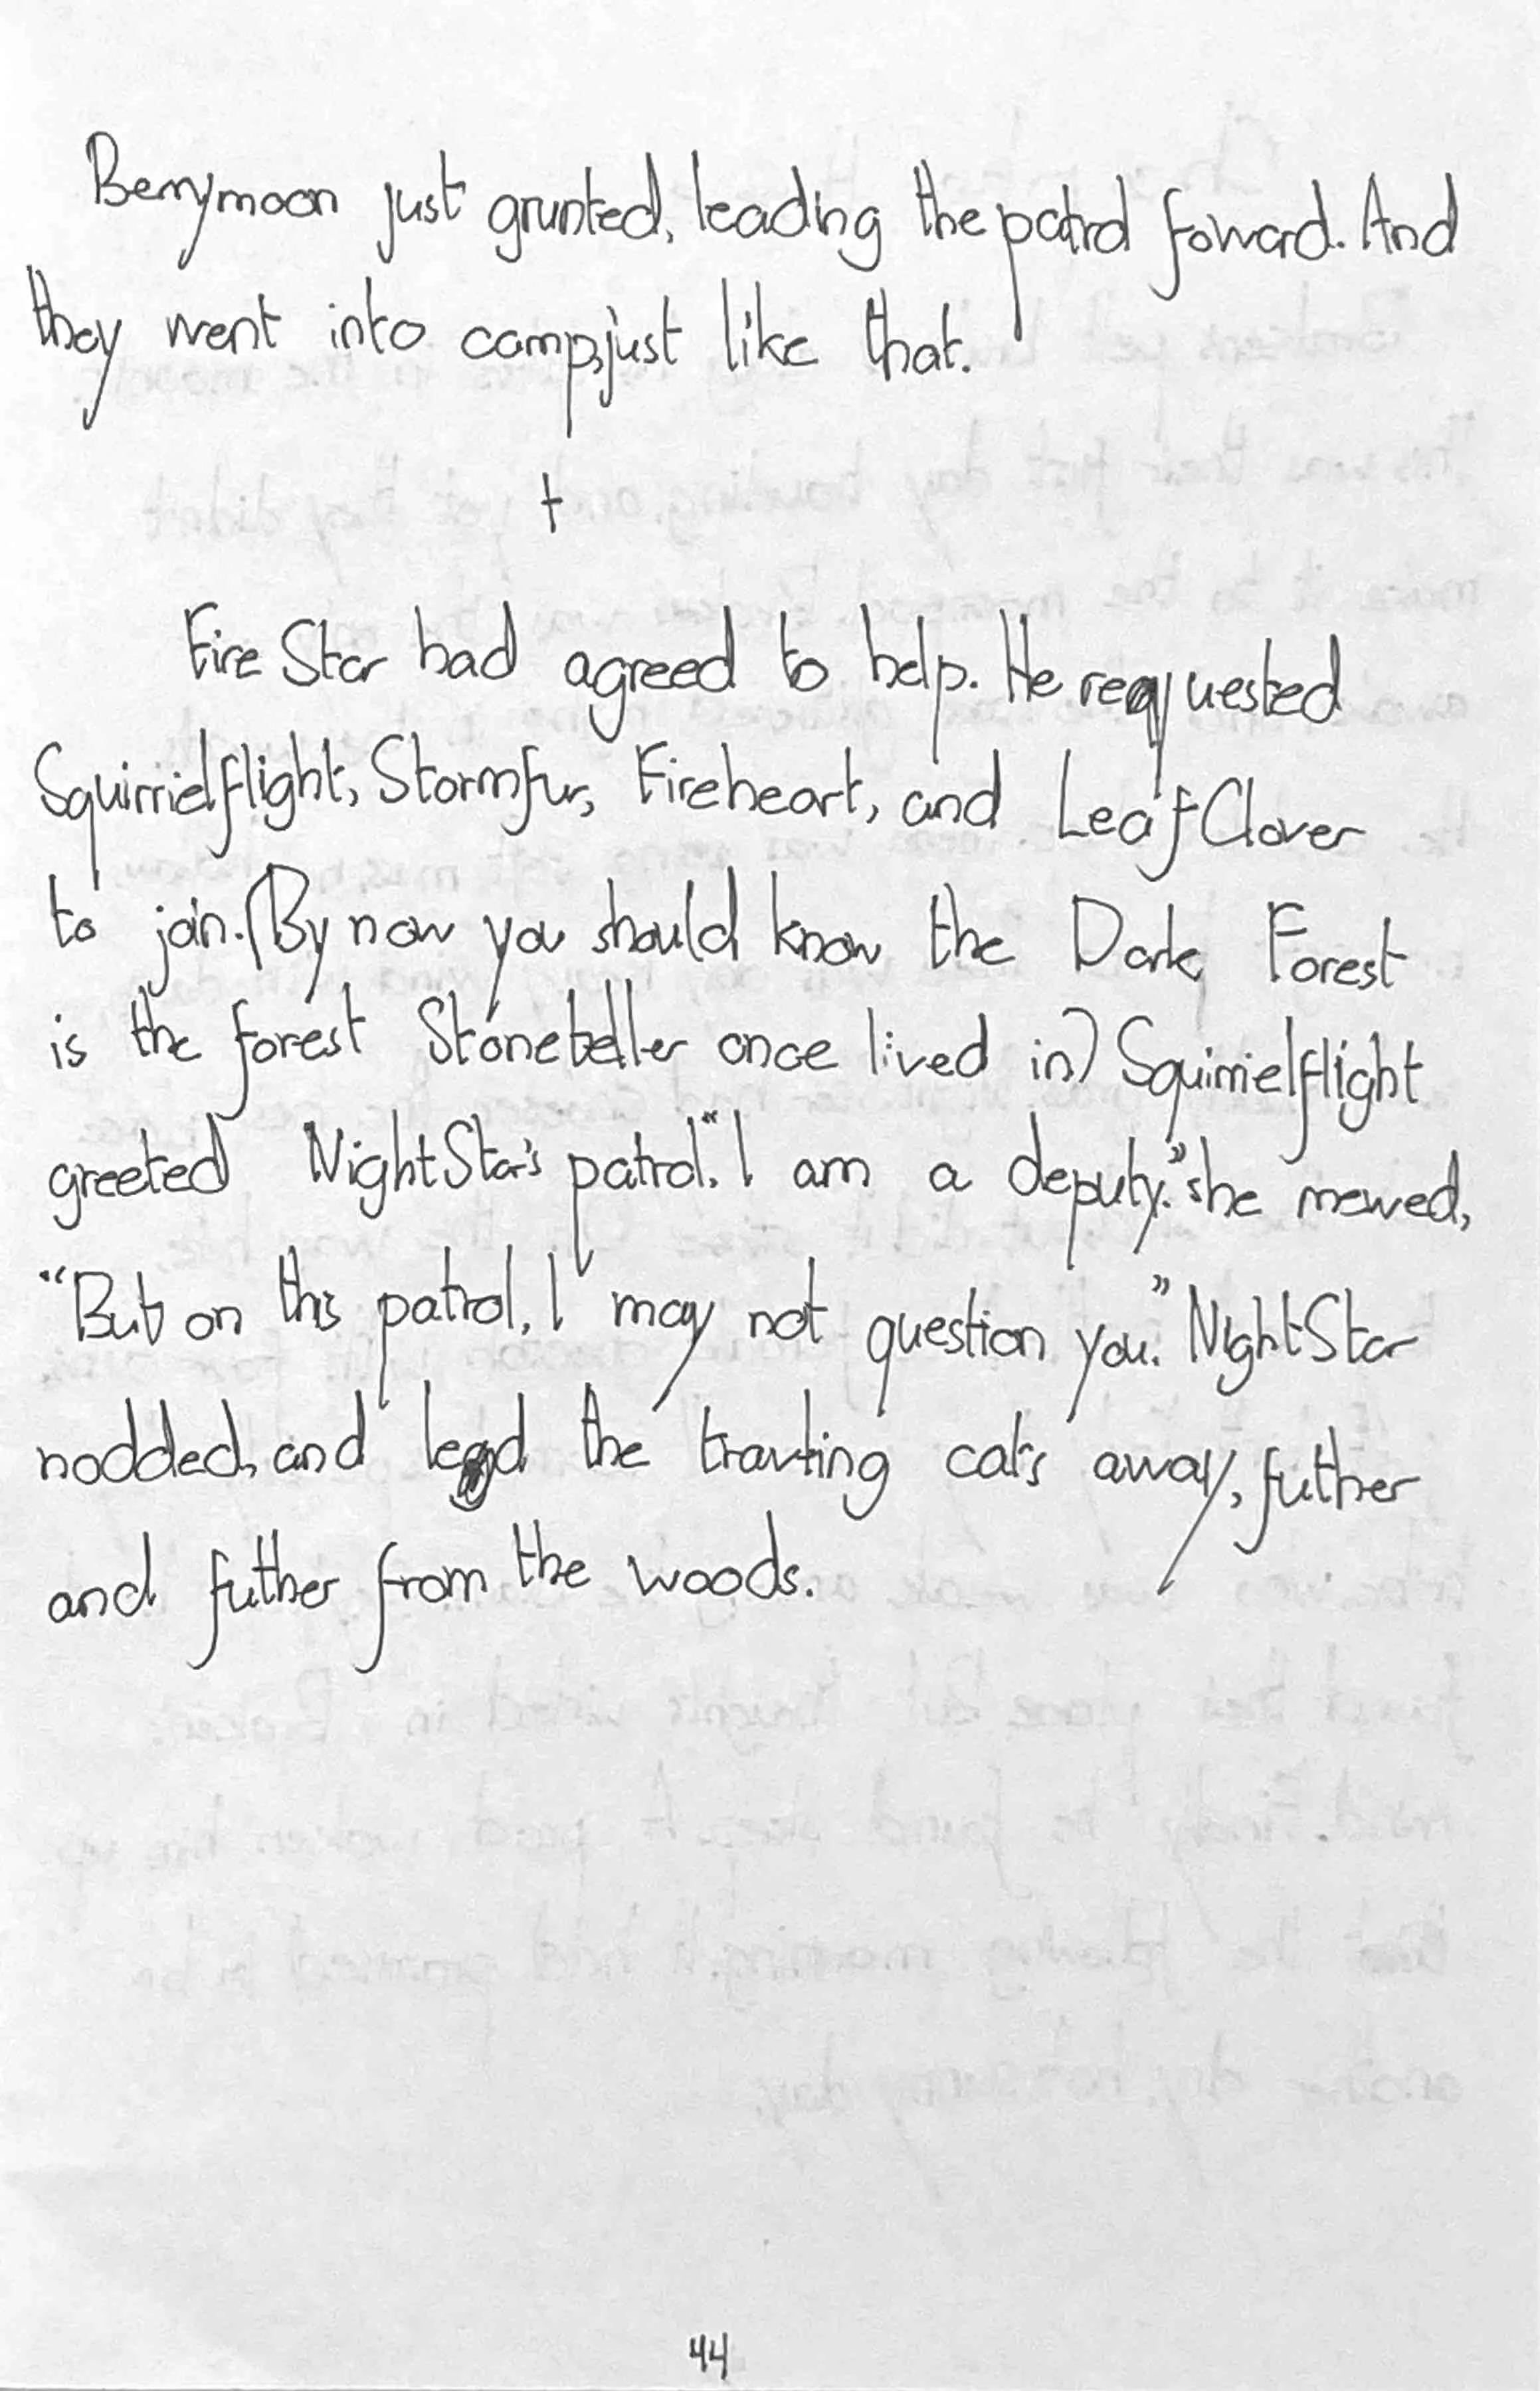 Berrymoon just grunted, leading the patrol foward. And
they went into camp, just like that.
†
Fire Star had agreed to help. He requested
Squirrielflight, Stormfur, Fireheart, and LeafClover
to join. (By now you should know the Dark Forest
is the forest Stoneteller once lived in) Squirrielflight
greeted NightStar's patrol. "I am a deputy." she mewed,
"But on this patrol, I may not question you." NightStar
nodded, and lead the cats away, futher
and futher from the woods.
44